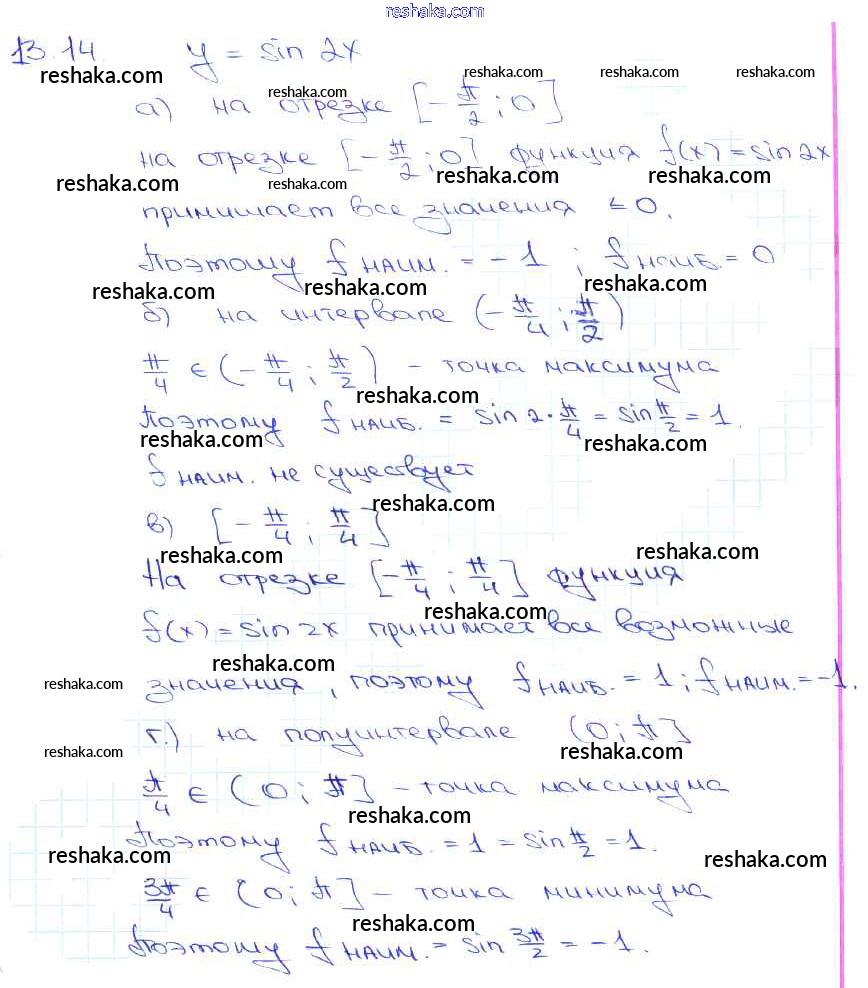 reshaka.com
13.14. y = sin 2x
reshaka.com reshaka.com reshaka.com reshaka.com reshaka.com
а) на отрезке [-π/2; 0]
на отрезке [-π/2; 0] функция f(x) = sin 2x
reshaka.com reshaka.com reshaka.com reshaka.com
принимает все значения ≤ 0.
Поэтому f наим. = -1 ; f наиб. = 0
reshaka.com reshaka.com reshaka.com
б) на интервале (-π/4; π/2)
π/4 ∈ (-π/4; π/2) - точка максимума
reshaka.com
Поэтому f наиб. = sin 2·π/4 = sin π/2 = 1.
reshaka.com reshaka.com
f наим. не существует
reshaka.com
в) [-π/4; π/4]
reshaka.com reshaka.com
На отрезке [-π/4; π/4] функция
reshaka.com
f(x) = sin 2x принимает все возможные
reshaka.com
reshaka.com значения, поэтому f наиб. = 1; f наим. = -1.
г.) на полуинтервале (0; π]
reshaka.com reshaka.com
π/4 ∈ (0; π] - точка максимума
reshaka.com
Поэтому f наиб. = 1 = sin π/2 = 1.
reshaka.com reshaka.com
3π/4 ∈ (0; π] - точка минимума
reshaka.com
Поэтому f наим. = sin 3π/2 = -1.